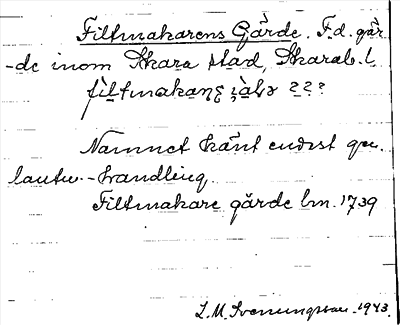 Filtmakarens Gärde. F.d. går-
-de inom Skara stad, Skarab. l.
Namnet känt endast gen.
lantm.-handling.
Filtmakare gärde lm. 1739
L. M. Svenungsson 1943.